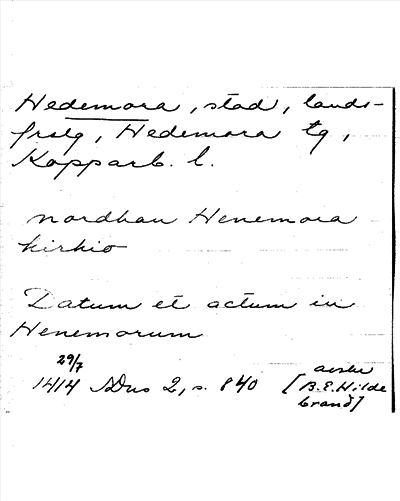 Hedemora, stad, lands-
frslg, Hedemora tg,
Kopparb. l.
nordhan Henemora
kirkio
Datum et actum in
Henemorum
29/7
1414 SDns 2, s. 840 [avskr
B.E. Hilde
brand]